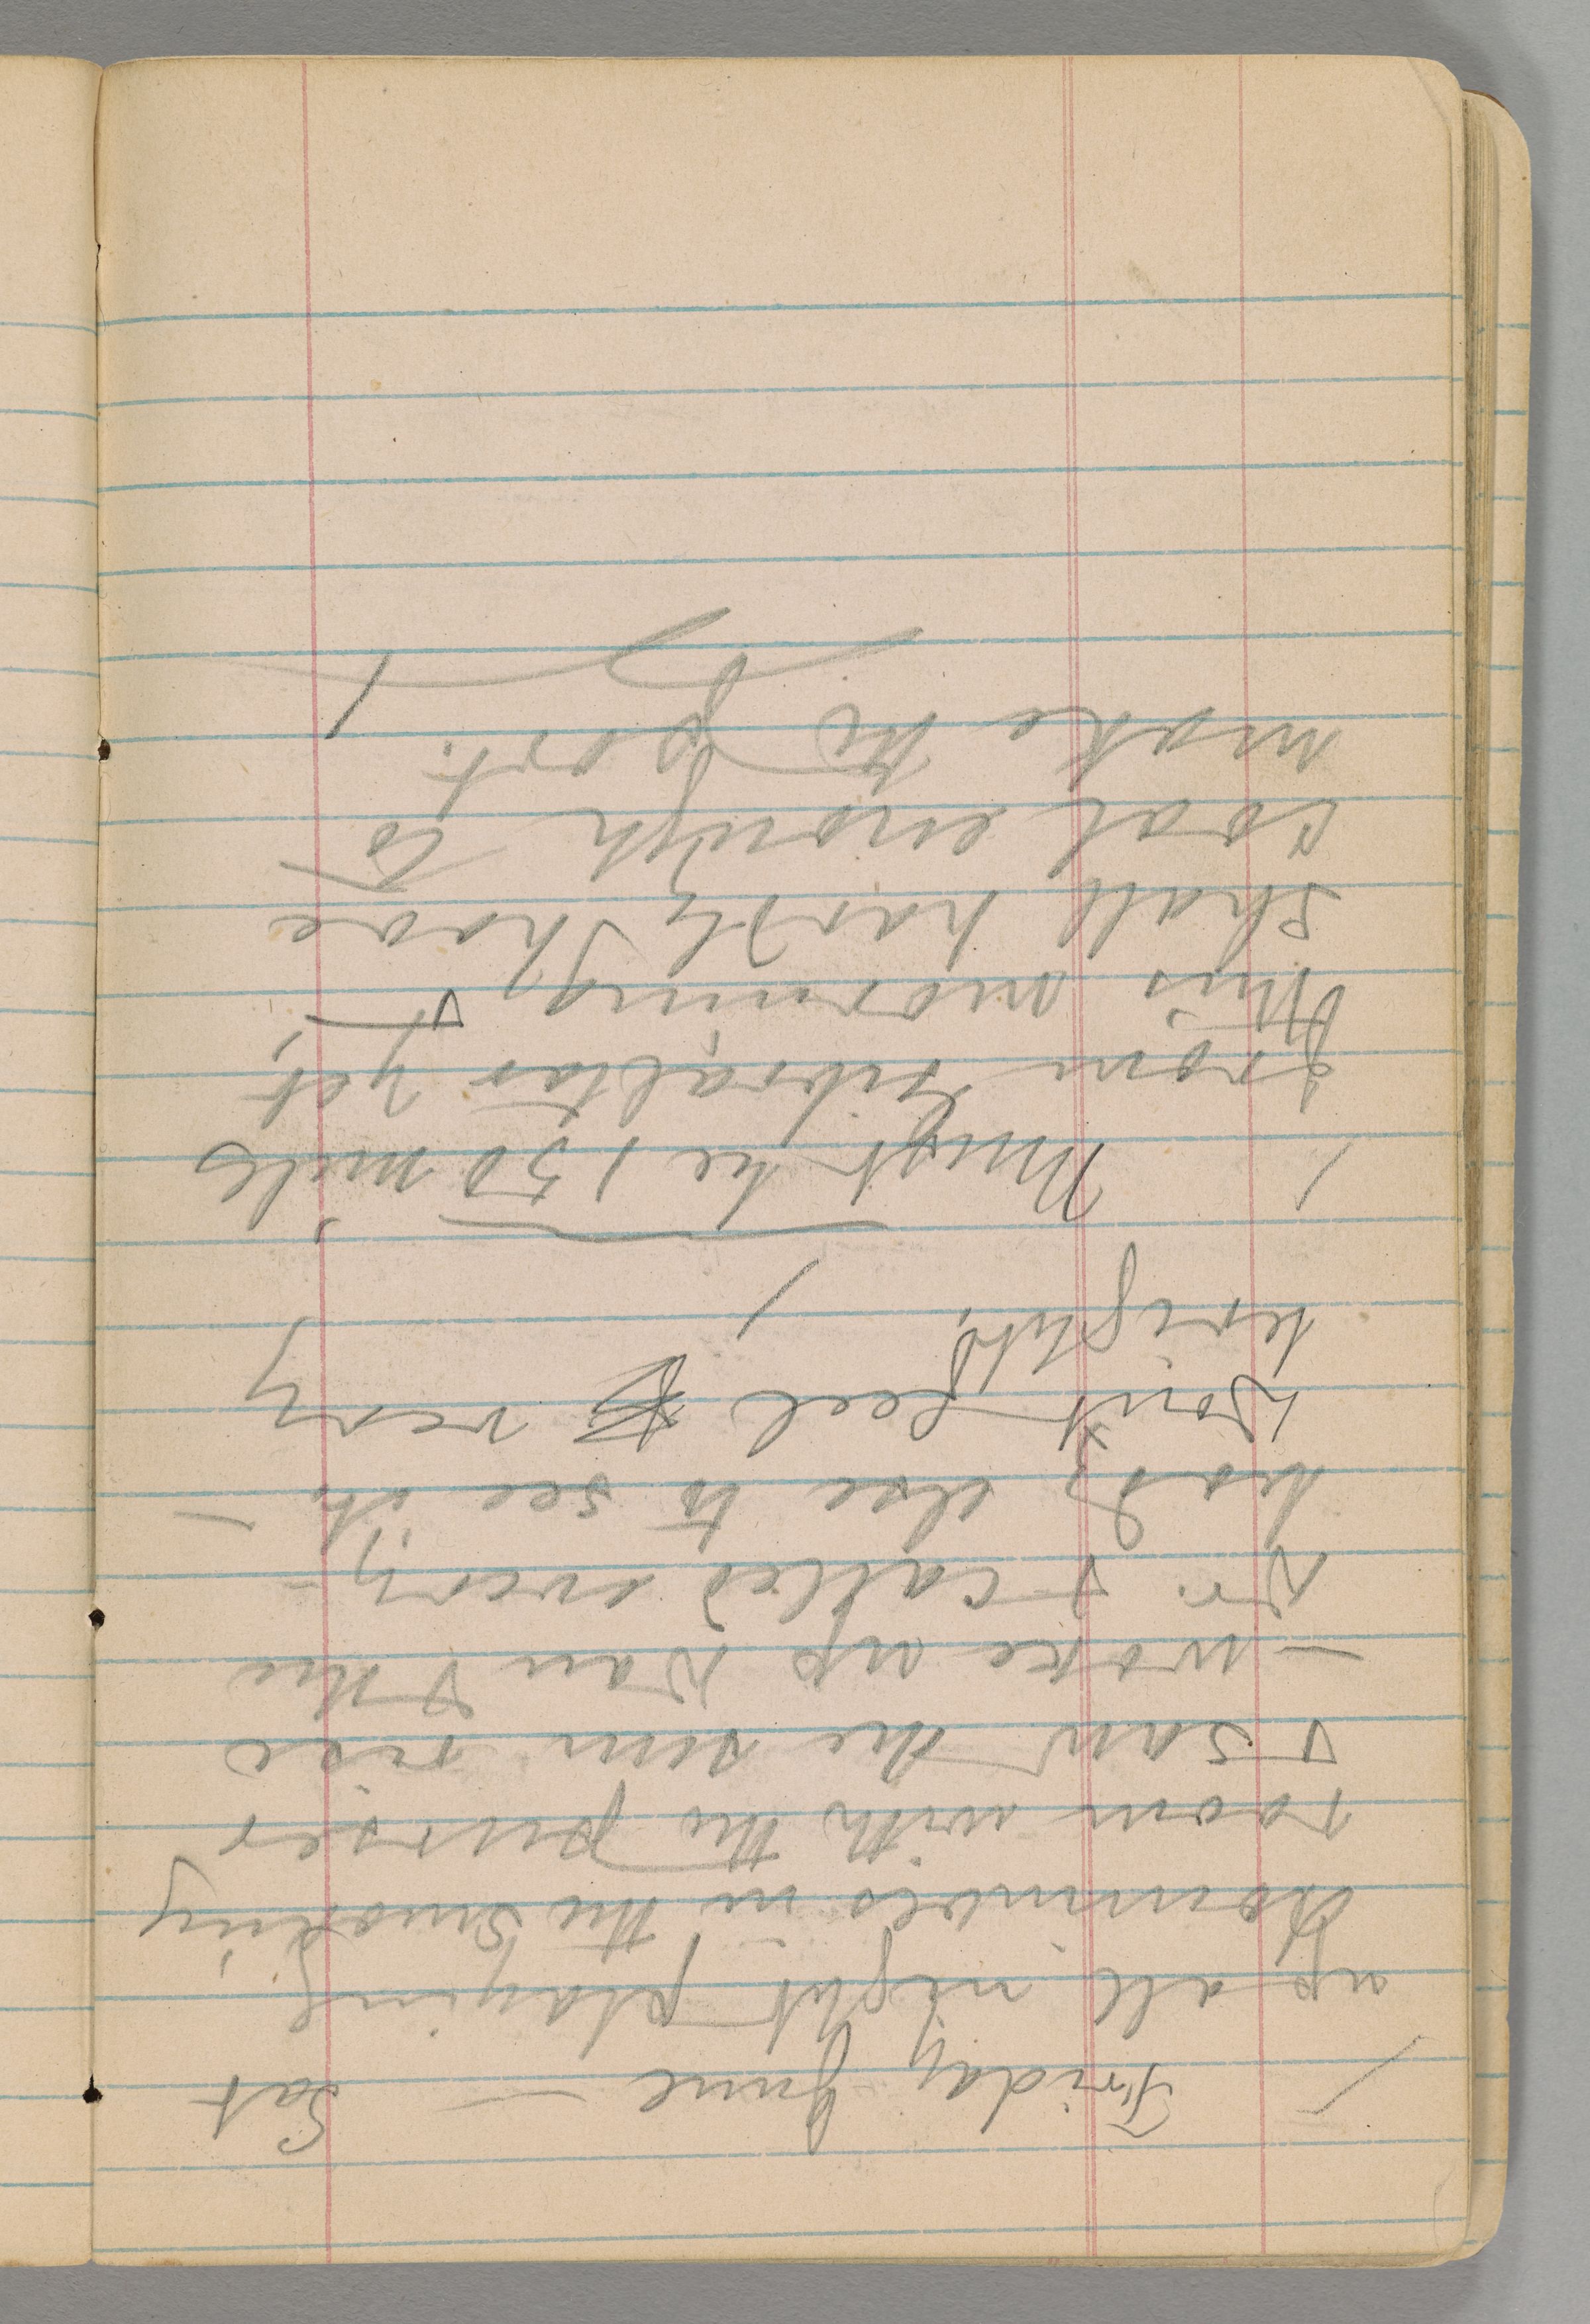 Friday June — Sat
up all night playing
dominoes in the smoking
room with the purser
& saw the sun rise
— woke up Dan & the
Dr. & called every-
body else to see it. —
Don't feel very
bright.
Must be 150 miles
from Gibraltar yet,
this morning, &
shall hardly have
coal enough to
make the port.